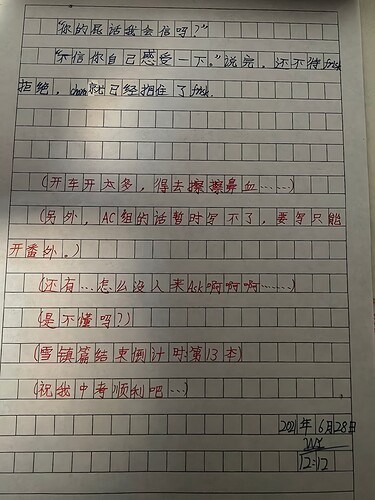 “你的屁话我会信吗？”
“不信你自己感受一下。”说完，还不得
拒绝，就已经抱住了
（开车开太多，得去擦擦鼻血……）
（另外，AC组的话暂时写不了，要写只能
开番外。）
（还有…怎么没人来Ask啊啊啊……）
（是不懂吗？）
（雪镇篇结束倒计时第13本）
（祝我中考顺利吧…）
2021年6月28日
12:12